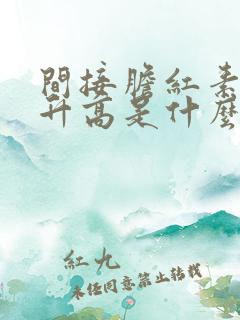 間接膽紅素
升高是什麼
紅九
未任同意禁止转载